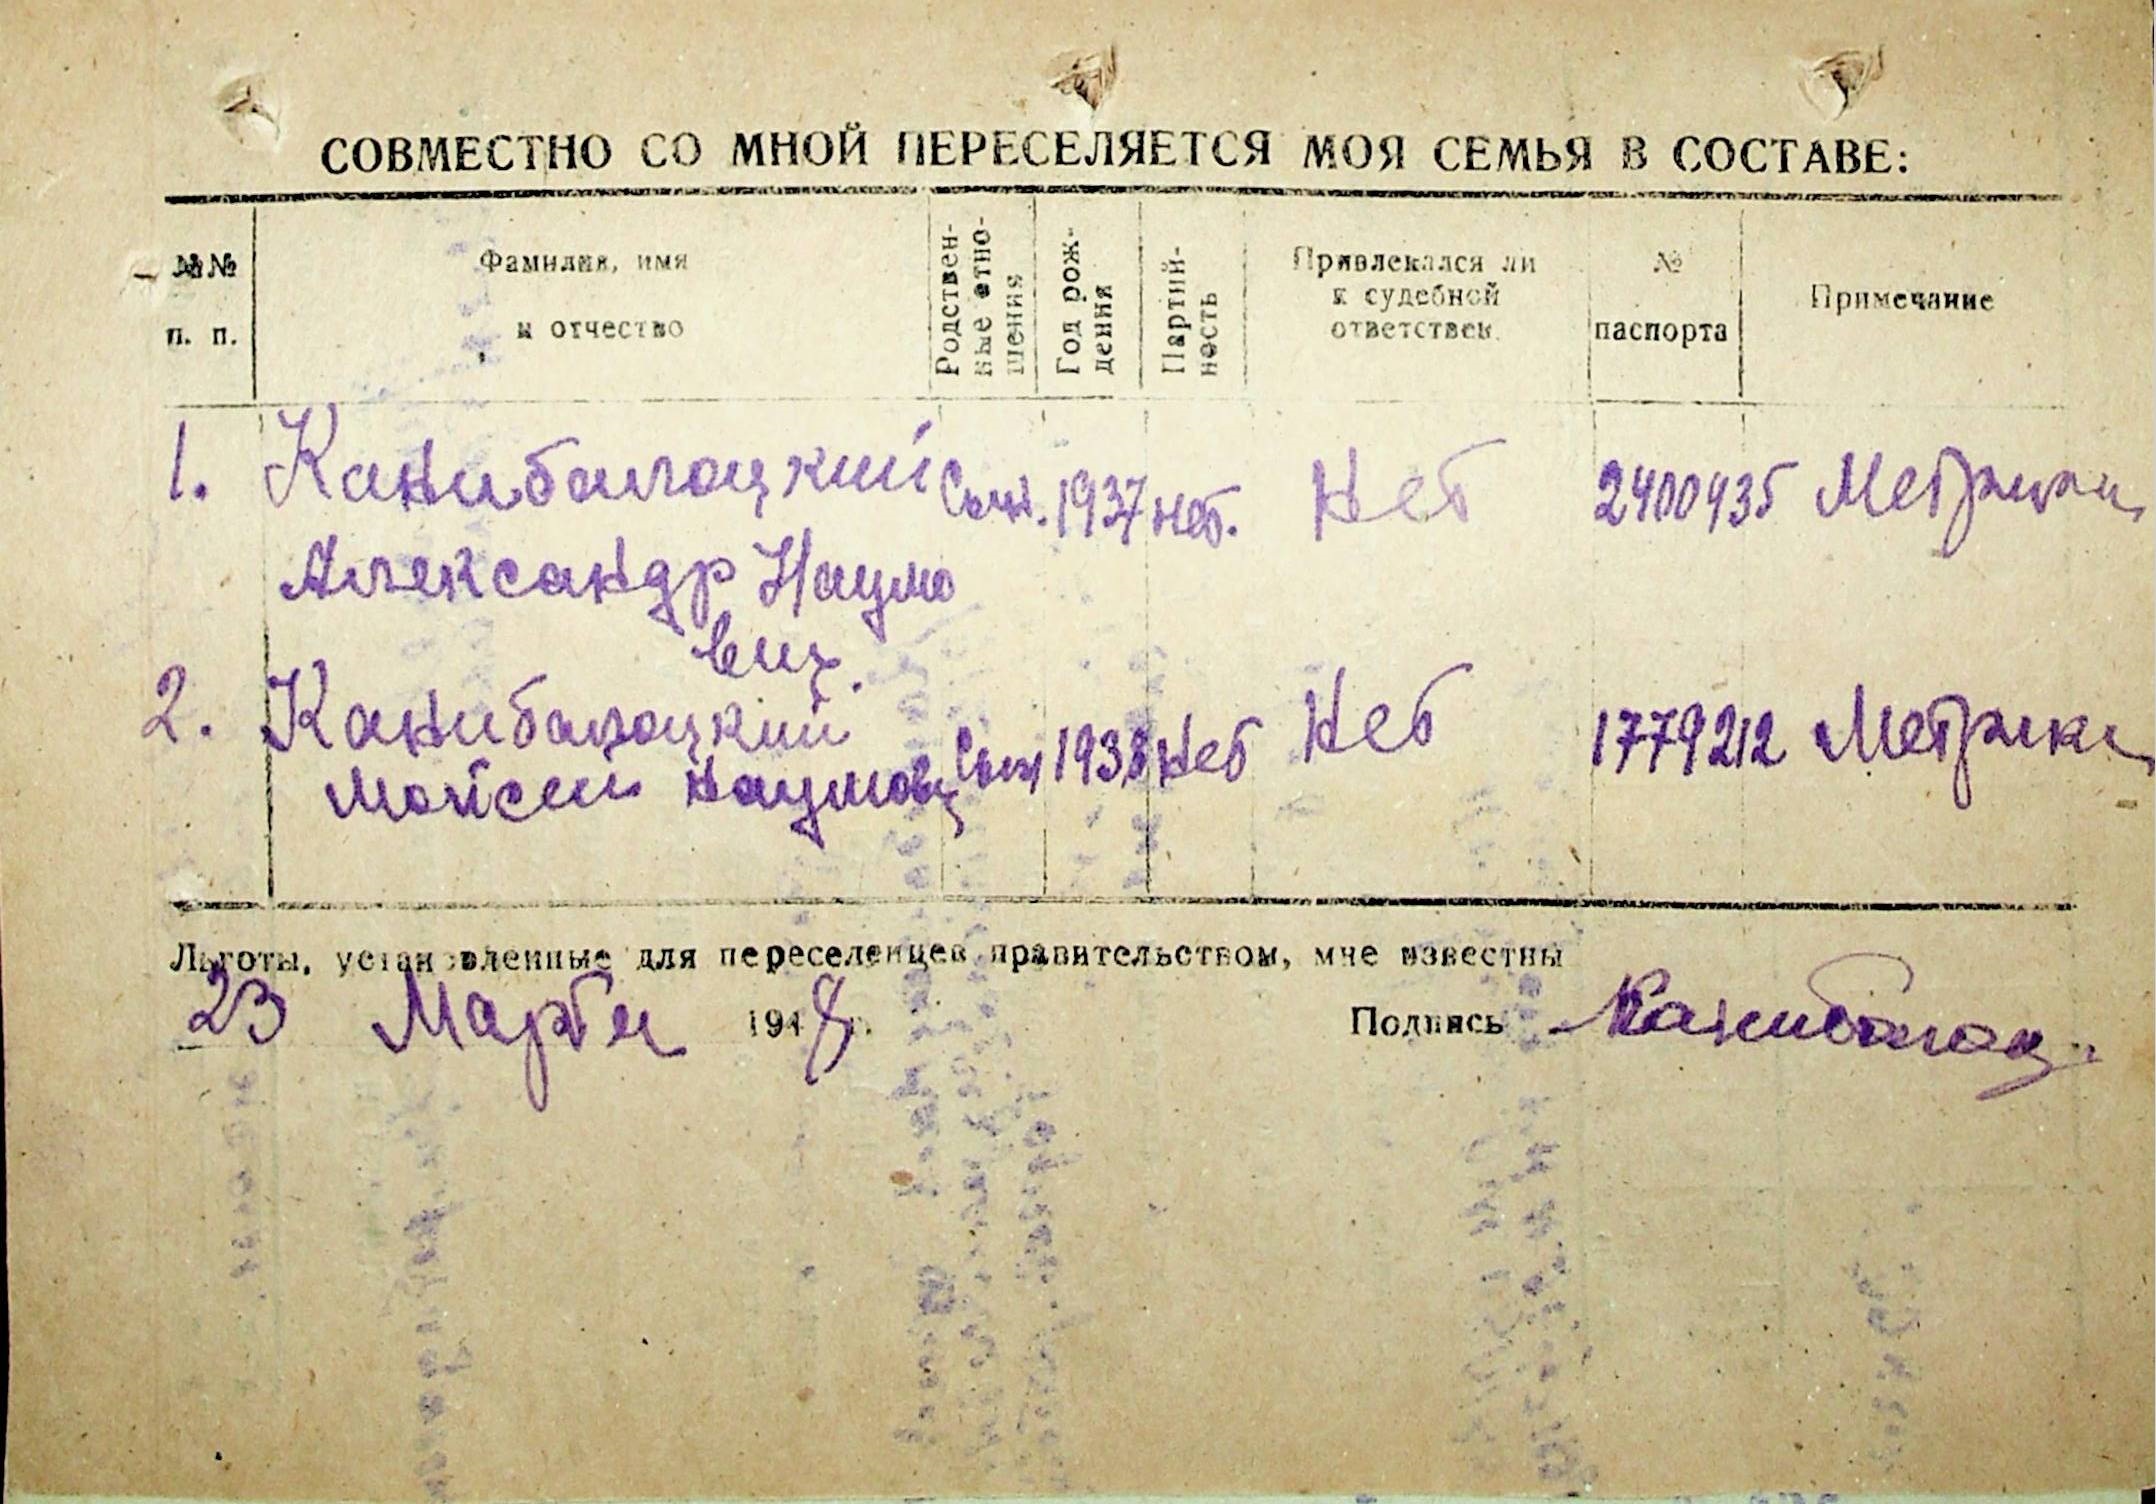 СОВМЕСТНО СО МНОЙ ПЕРЕСЕЛЯЕТСЯ МОЯ СЕМЬЯ В СОСТАВЕ:
№№ п. п.
Фамилия, имя и отчество
Родствен-
ные отно-
шения
Год рож-
дения
Партий-
ность
Привлекался ли
к судебной
ответствен.
№
паспорта
Примечание
1. Канибалоцкий Сын. 1937 нет. Нет 2400435 Метрики
Александр Наумо
вич.
2. Канибалоцкий
Мойсей Наумов Сын 1938 Нет Нет 1779212 Метрики
Льготы, установленные для переселенцев правительством, мне известны
23 Марта 1948 г. Подпись Канибалоц